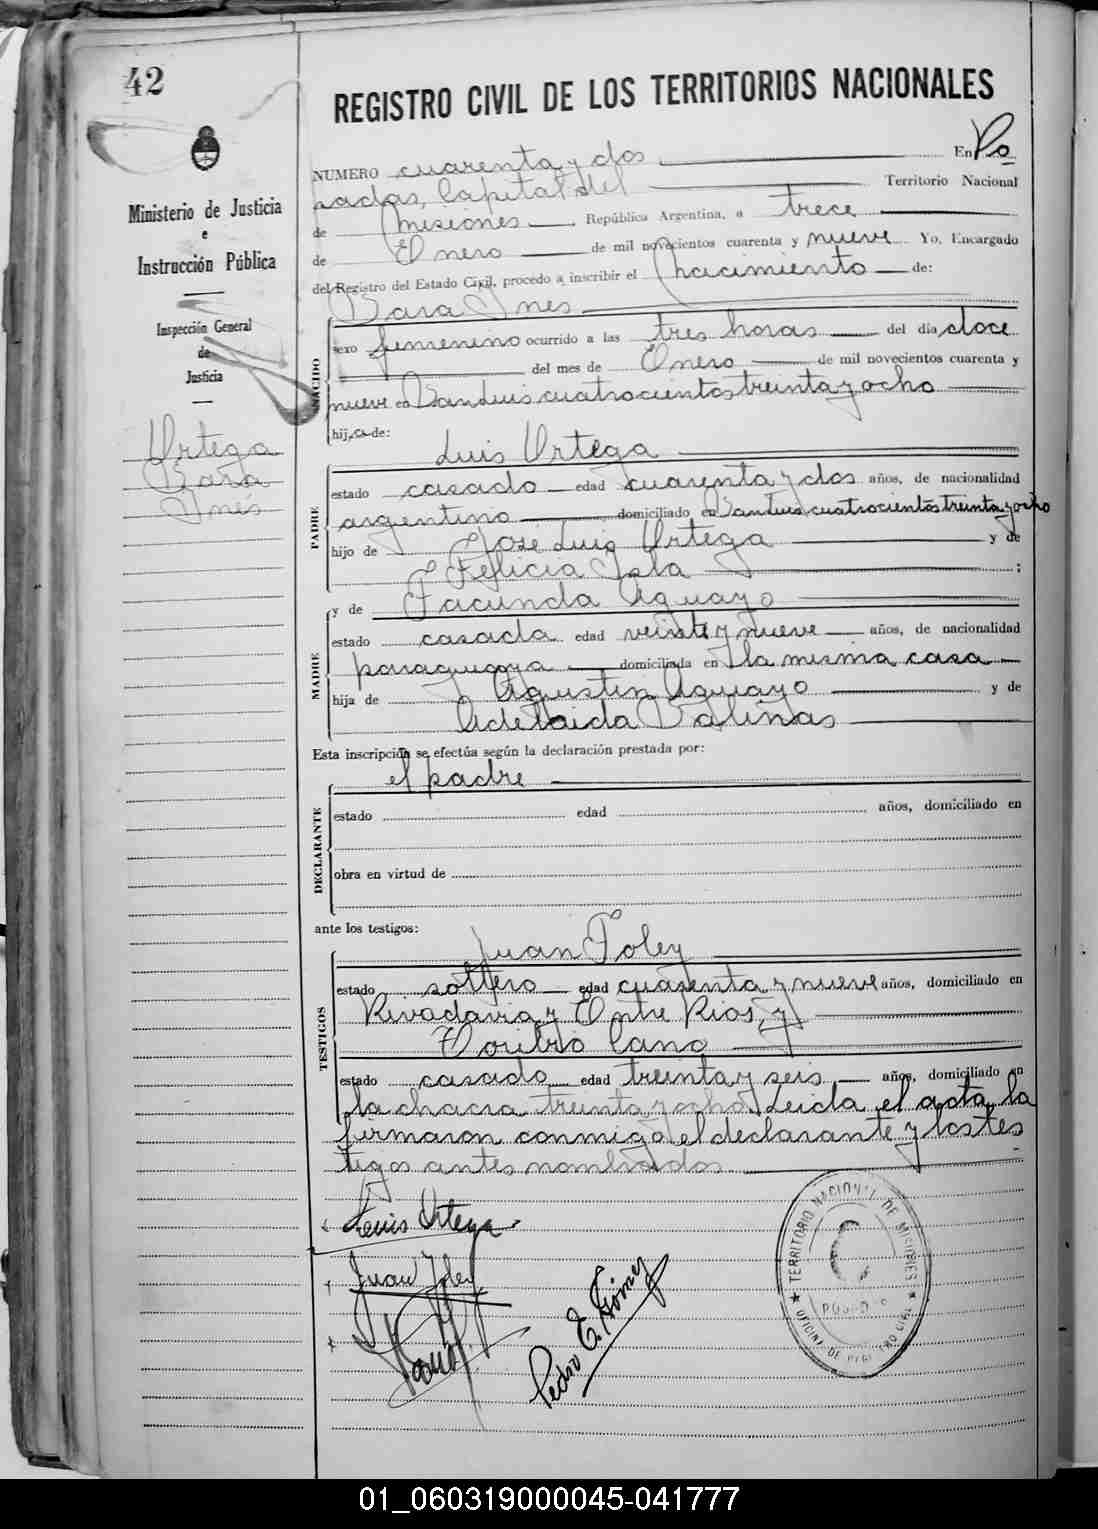 42
REGISTRO CIVIL DE LOS TERRITORIOS NACIONALES
Ministerio de Justicia
e
Instrucción Pública
Inspección General
de
Justicia
Ortega
Sara
Inés
NUMERO cuarenta y dos En Po
sadas, Capital del Territorio Nacional
de Misiones República Argentina, a trece
de Enero de mil novecientos cuarenta y nueve Yo, Encargado
del Registro del Estado Civil, procedo a inscribir el nacimiento de:
Sara Ines
NACIDO
sexo femenino ocurrido a las tres horas del día doce
del mes de Enero de mil novecientos cuarenta y
nueve en San Luis cuatrocientos treinta y ocho
hija de:
Luis Ortega
PADRE
estado casado edad cuarenta y dos años, de nacionalidad
argentino domiciliado en San Luis cuatrocientos treinta y ocho
hijo de José Luis Ortega y de
Felicia Isla ;
y de Facunda Aguayo
MADRE
estado casada edad veinte y nueve años, de nacionalidad
paraguaya domiciliada en la misma casa
hija de Agustin Aguayo y de
Adelaida Salinas
Esta inscripción se efectúa según la declaración prestada por:
el padre
DECLARANTE
estado edad años, domiciliado en
obra en virtud de
ante los testigos:
Juan Foley
TESTIGOS
estado soltero edad cuarenta y nueve años, domiciliado en
Rivadavia y Entre Rios, y
Toribio Cano
estado casado edad treinta y seis años, domiciliado en
la chacra treinta y ocho. Leida el acta, la
firmaron conmigo el declarante y los tes
tigos antes nombrados
Luis Ortega
Juan Foley
Pedro E. Gómez
TERRITORIO NACIONAL DE MISIONES
POSADAS
OFICINA DE REGISTRO CIVIL
01_060319000045-041777